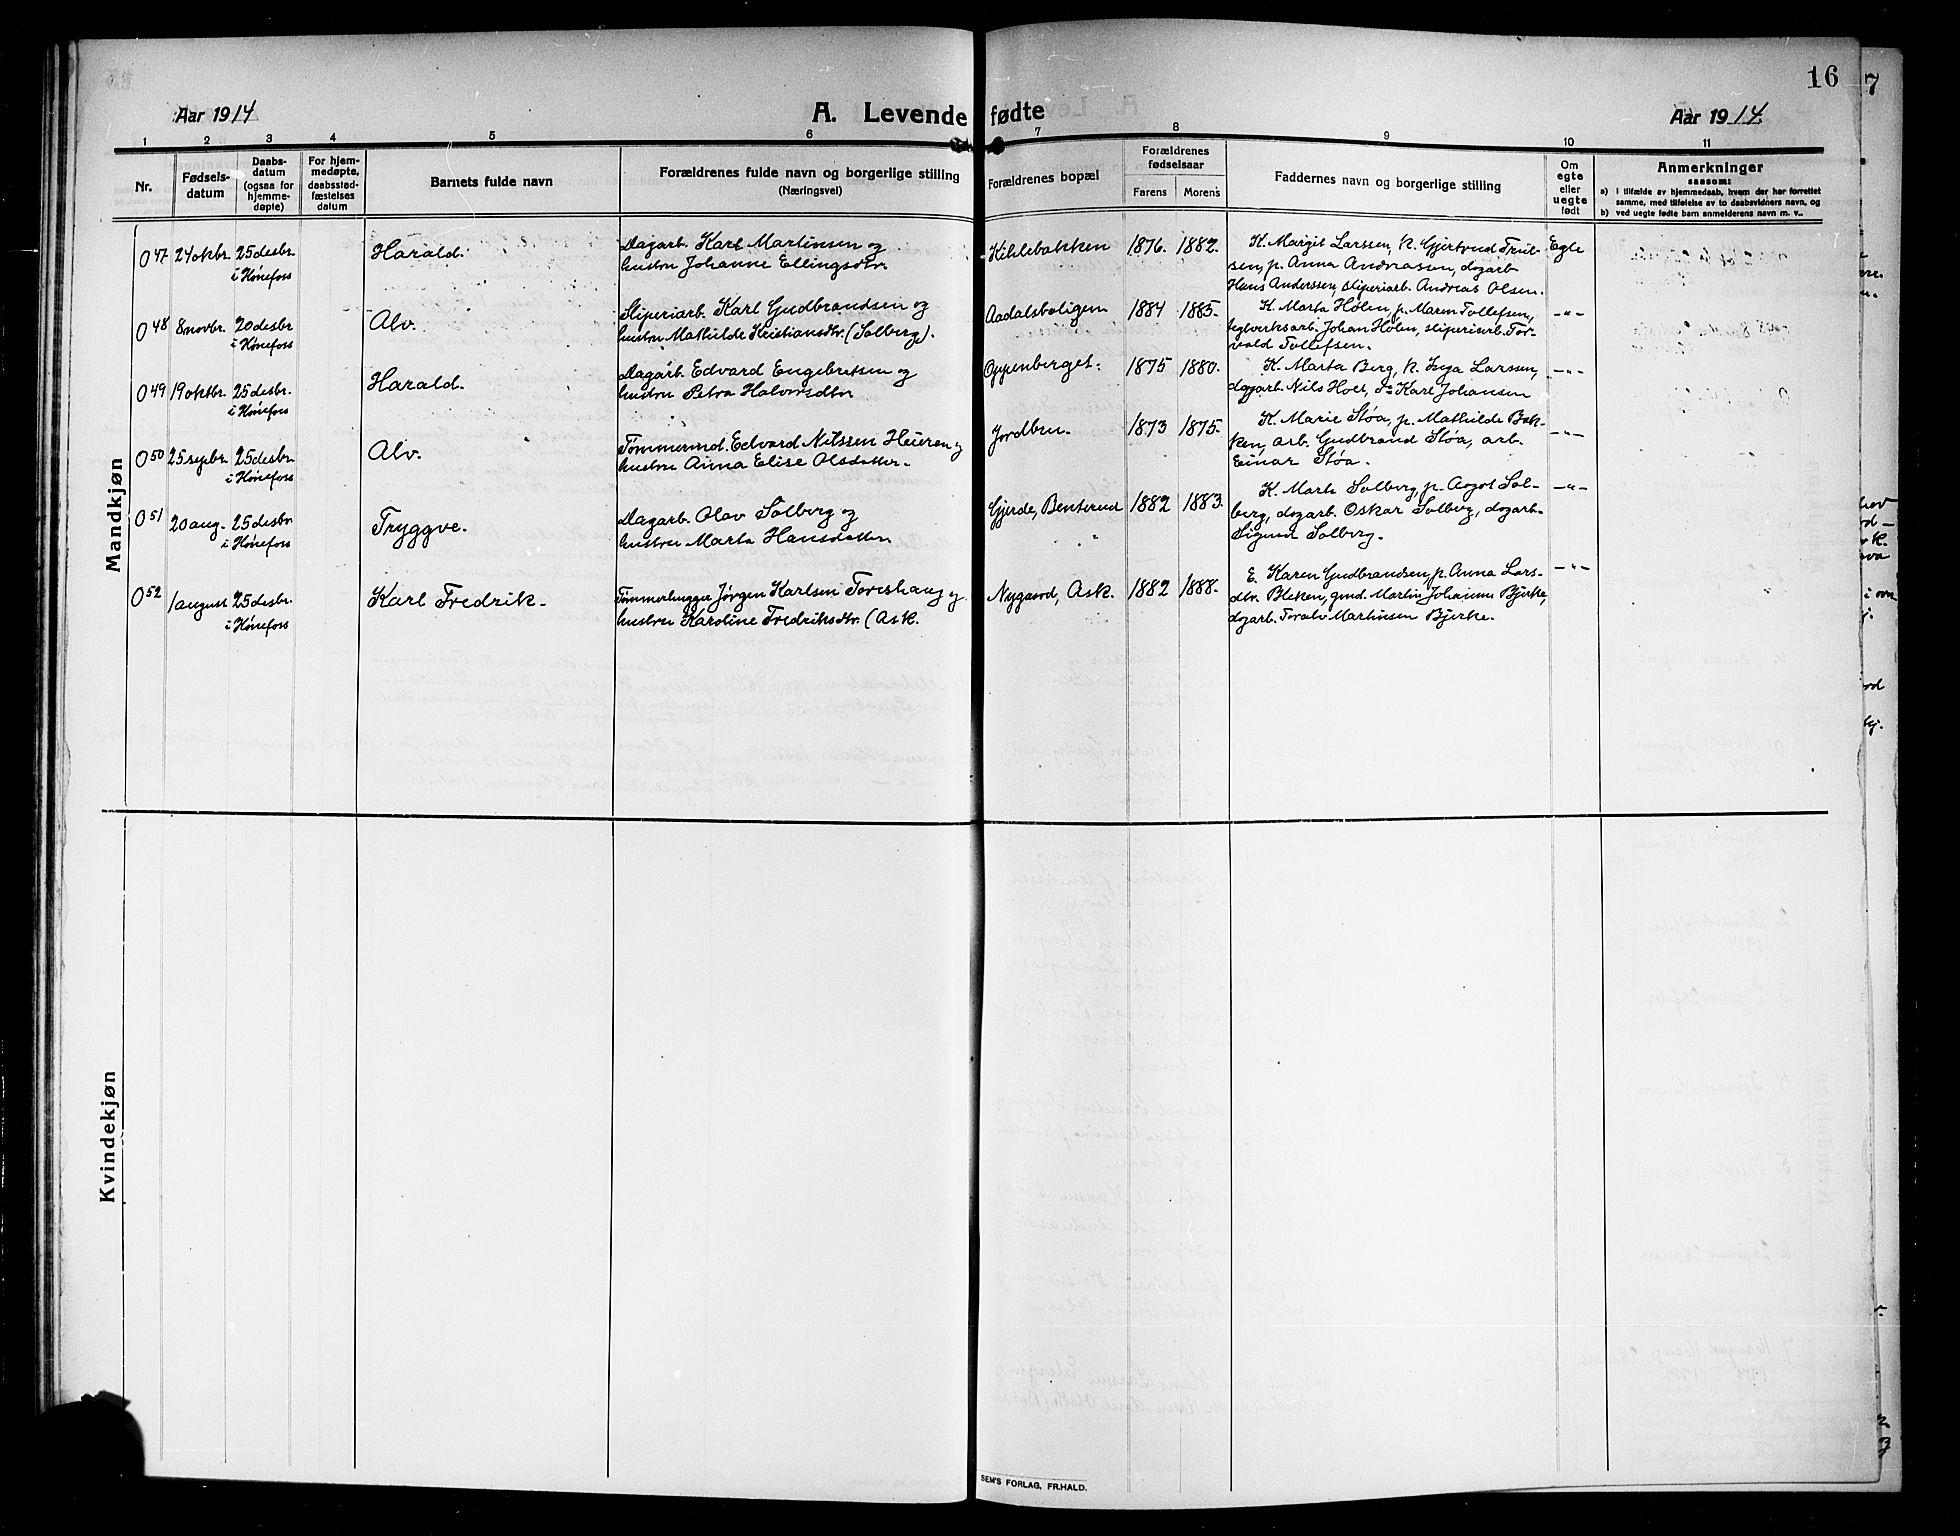 16
7
Aar 1914
A. Levende fødte
Aar 1914.
1 2 3 4 5 6 7 8 9 10 11
Nr.
Fødsels-
datum
Daabs-
datum
(ogsaa for
hjemme-
døpte)
For hjem-
medøpte,
daabsstad-
fæstelses
datum
Barnets fulde navn
Forældrenes fulde navn og borgerlige stilling
(Næringsvei)
Forældrenes bopæl
Forældrenes
fødselsaar
Farens
Morens
Faddernes navn og borgerlige stilling
Om
egte
eller
uegte
født
Anmerkninger
sassom:
a) i tilfælde av hjemmedaab, hvem der har forrettet
samme, med tilføielse av to daabsvidners navn, og
b) ved uegte fødte barn anmelderens navn m. v..
Mandkjøn
O 47 24 oktbr. 25 desbr.
i Hønefoss
Harald.
Dagarb. Karl Martinsen og
hustru Johanne Ellingsdtr.
Kihlebakken 1876. 1882.
K. Margit Larssen, k. Gjertrud Trul-
sen, p. Anna Andrassen, dagarb.
Hans Anderssen, sliperiarb. Andreas Olsen.
Egte
O 48 8 novbr. 20 desbr.
i Hønefoss
Alv.
Sliperiarb. Karl Gudbrandsen og
hustru Mathilde Kristiansdtr. (Solberg).
Aadalsboligen 1884 1885.
K. Marta Holen, p. Maren Tollefsen,
teglverksarb. Johan Holen, sliperiarb. Tor-
vald Tollefsen.
-"-
O 49 19 oktbr. 25 desbr.
i Hønefoss
Harald.
Dagarb. Edvard Engebretsen og
hustru Petra Halvorsdtr
Oppenberget. 1875 1880.
K. Marta Berg, k. Inga Larssen,
dagarb. Nils Hoel, Do Karl Johansen
-"-
O 50 25 sepbr. 25 desbr.
i Hønefoss
Alv.
Tømmermd. Edvard Nilssen Heieren og
hustru Anna Elise Olsdatter.
Jordbru. 1873 1875.
K. Marie Støa, p. Mathilde Bak-
ken, arb. Gudbrand Støa, arb.
Einar Støa.
-"-
O 51 20 aug. 25 desbr
i Hønefoss
Tryggve.
Dagarb. Olav Solberg og
hustru Marta Hansdatter
Gjerde, Benterud 1882 1883.
K. Marte Solberg, p. Aagot Sol-
berg, dagarb. Oskar Solberg, dagarb.
Sigurd Solberg.
-"-
O 52 1 august 25 desbr.
i Hønefoss
Karl Fredrik.
Tømmerhugger Jørgen Karlsen Toreshaug og
hustru Karoline Fredriksdtr. (Ask.
Nygaard, Ask. 1882 1888.
E. Karen Gudbrandsen, p. Anna Lars-
dtr. Bleken, gmd. Martin Johannes Bjerke,
dagarb. Toralv Martinsen Bjerke.
-"-
Kvindekjøn
SEM'S FORLAG, FR.HALD.